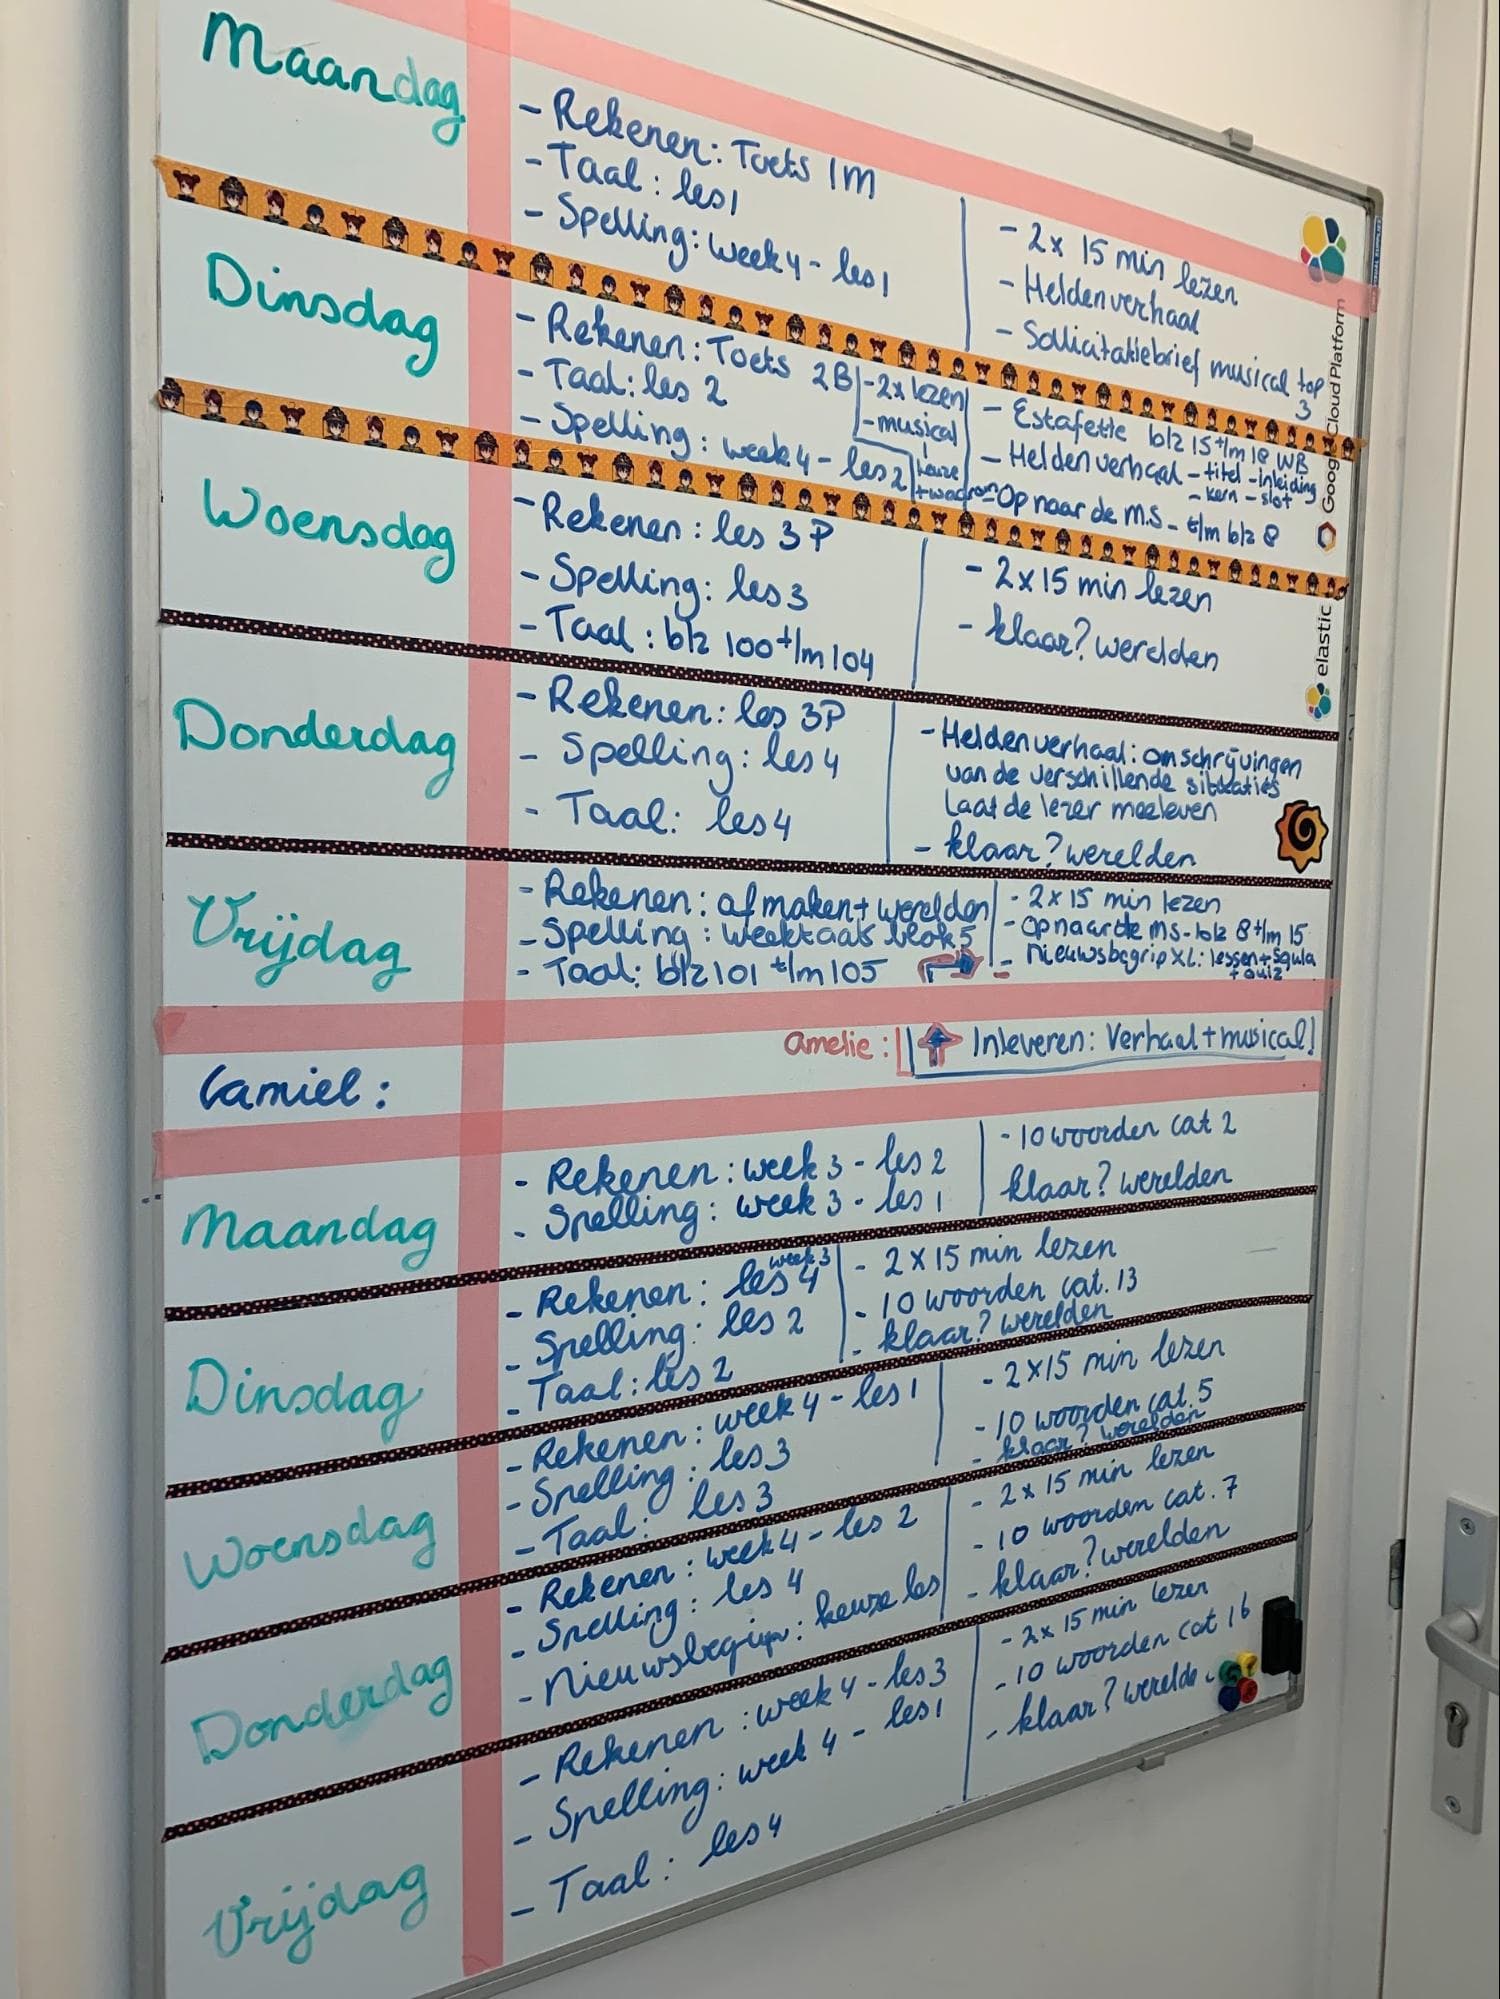 Maandag
- Rekenen: Toets 1M
- Taal: les 1
- Spelling: week 4 - les 1
- 2x 15 min lezen
- Heldenverhaal
- Sollicitatiebrief musical top
3
Dinsdag
- Rekenen: Toets 2B
- Taal: les 2
- Spelling: week 4 - les 2
- 2x lezen
- musical
keuze
+ waarom
- Estafette blz 15 t/m 18 WB
- Heldenverhaal - titel - inleiding
- kern - slot
- Op naar de M.S - t/m blz 8
Woensdag
- Rekenen: les 3P
- Spelling: les 3
- Taal: blz 100 t/m 104
- 2x15 min lezen
- klaar? werelden
Donderdag
- Rekenen: les 3P
- Spelling: les 4
- Taal: les 4
- Heldenverhaal: omschrijvingen
van de verschillende situaties
Laat de lezer meeleven
- klaar? werelden
Vrijdag
- Rekenen: afmaken + werelden
- Spelling: weektaak blok 5
- Taal: blz 101 t/m 105
- 2x 15 min lezen
- Op naar de MS - blz 8 t/m 15
- Nieuwsbegrip XL: lessen + Squla
+ quiz
Amelie:
Inleveren: Verhaal + musical!
Camiel:
Maandag
- Rekenen: week 3 - les 2
- Spelling: week 3 - les 1
- 10 woorden cat 2
klaar? werelden
Dinsdag
week 3
- Rekenen: les 4
- Spelling: les 2
- Taal: les 2
- 2x 15 min lezen
- 10 woorden cat. 13
- klaar? werelden
Woensdag
- Rekenen: week 4 - les 1
- Spelling: les 3
- Taal: les 3
- 2x15 min lezen
- 10 woorden cat. 5
- klaar? werelden
Donderdag
- Rekenen: week 4 - les 2
- Spelling: les 4
- Nieuwsbegrip: keuze les
- 2x 15 min lezen
- 10 woorden cat. 7
- klaar? werelden
Vrijdag
- Rekenen: week 4 - les 3
- Spelling: week 4 - les 1
- Taal: les 4
- 2x 15 min lezen
- 10 woorden cat 16
- klaar? werelde
Google Cloud Platform
elastic